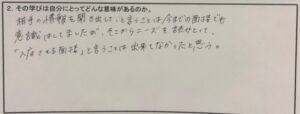 2. その学びは自分にとってどんな意味があるのか。
相手の情報を聞き出していくと言うことは今までの面接でも
意識はしてましたが、そこからニーズを読みとって、
「入店させる面接」と言うことは出来てなかったと思う。